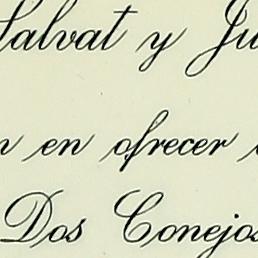 Salvat y Ju
n en ofrecer
Dos Conejos